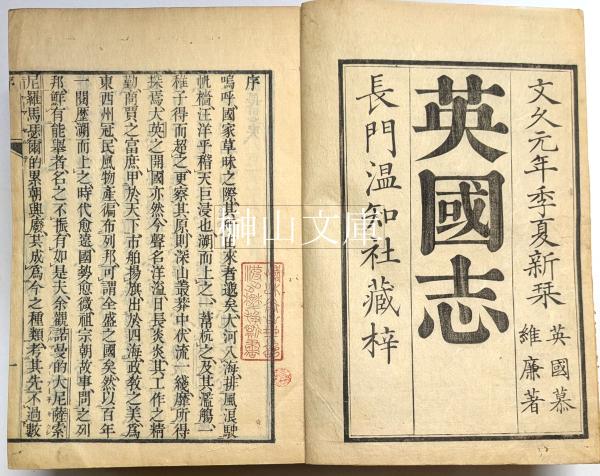 文久元年季夏新栞
英國慕
維廉著
英國志
長門温知社藏梓
序
嗚呼國家草昧之際其所由來者邈矣大河入海排風浪駛
帆檣汪洋乎稽天巨浸也溯而上之一葦杭之及其濫觴一
稚子得而超之更察其原則深山叢莽中伏流一綫靡所得
探焉大英之開國亦然今聲名洋溢日長炎炎其工作之精
勤商賈之富庶甲於天下市舶揚旗出於四海政敎之美爲
東西州冠民風物產徧布列邦可謂全盛之國矣然以百年
一閱歷溯而上之時代愈遠國勢愈微祖宗朝故事問之列
邦鮮有能舉者名之不振有如是夫余觀諾曼的大尼薩索
尼羅馬瑟爾的累朝興廢其成爲今之種類考其先不過數
榊山文庫